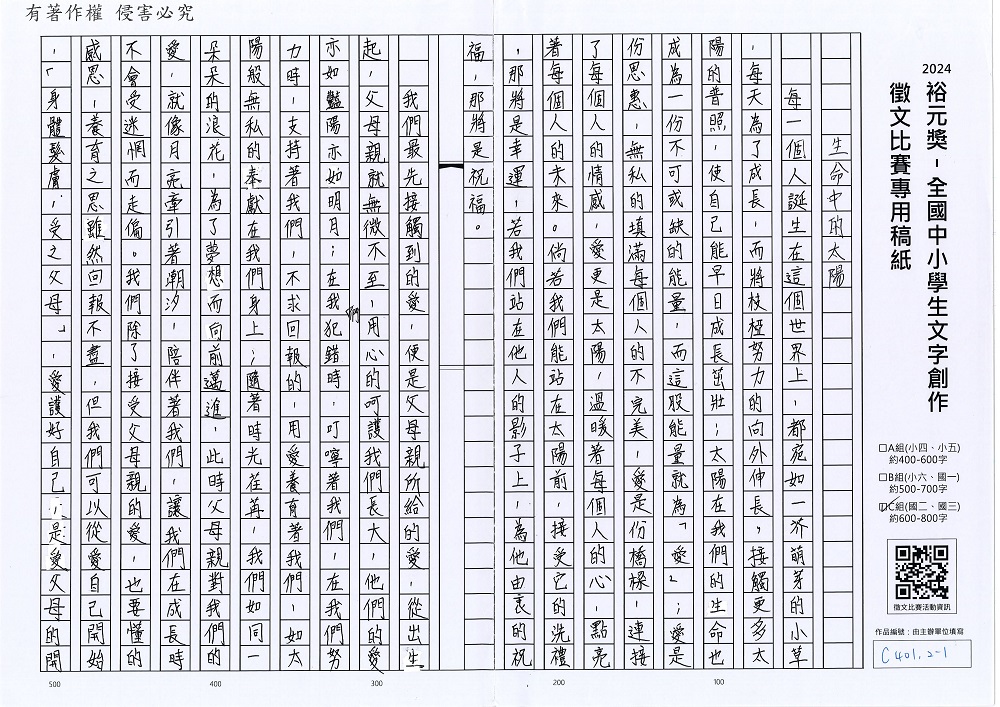 有著作權 侵害必究
2024
裕元獎-全國中小學生文字創作
徵文比賽專用稿紙
□A組(小四、小五)
約400-600字
□B組(小六、國一)
約500-700字
☑C組(國二、國三)
約600-800字
徵文比賽活動資訊
作品編號:由主辦單位填寫
C401.2-1
生命中的太陽
每一個人誕生在這個世界上,都宛如一芥萌芽的小草
,每天為了成長,而將枝椏努力的向外伸長,接觸更多太
陽的普照,使自己能早日成長茁壯;太陽在我們的生命也
成為一份不可或缺的能量,而這股能量就為「愛」;愛是
份恩惠,無私的填滿每個人的不完美,愛是份橋樑,連接
了每個人的情感,愛更是太陽,溫暖著每個人的心,點亮
著每個人的未來。倘若我們能站在太陽前,接受它的洗禮
,那將是幸運,若我們站在他人的影子上,為他由衷的祝
福,那將是祝福。
我們最先接觸到的愛,便是父母親所給的愛,從出生
起,父母親就無微不至,用心的呵護我們長大,他們的愛
亦如豔陽亦如明月;在我們犯錯時,叮嚀著我們,在我們努
力時,支持著我們,不求回報的,用愛養育著我們,如太
陽般無私的奉獻在我們身上;隨著時光荏苒,我們如同一
朵朵的浪花,為了夢想而向前邁進,此時父母親對我們的
愛,就像月亮牽引著潮汐,陪伴著我們,讓我們在成長時
不會受迷惘而走偏。我們除了接受父母親的愛,也要懂的
感恩,養育之恩雖然回報不盡,但我們可以從愛自己開始
,「身體髮膚,受之父母。」,愛護好自己,是愛父母的開
100
200
300
400
500